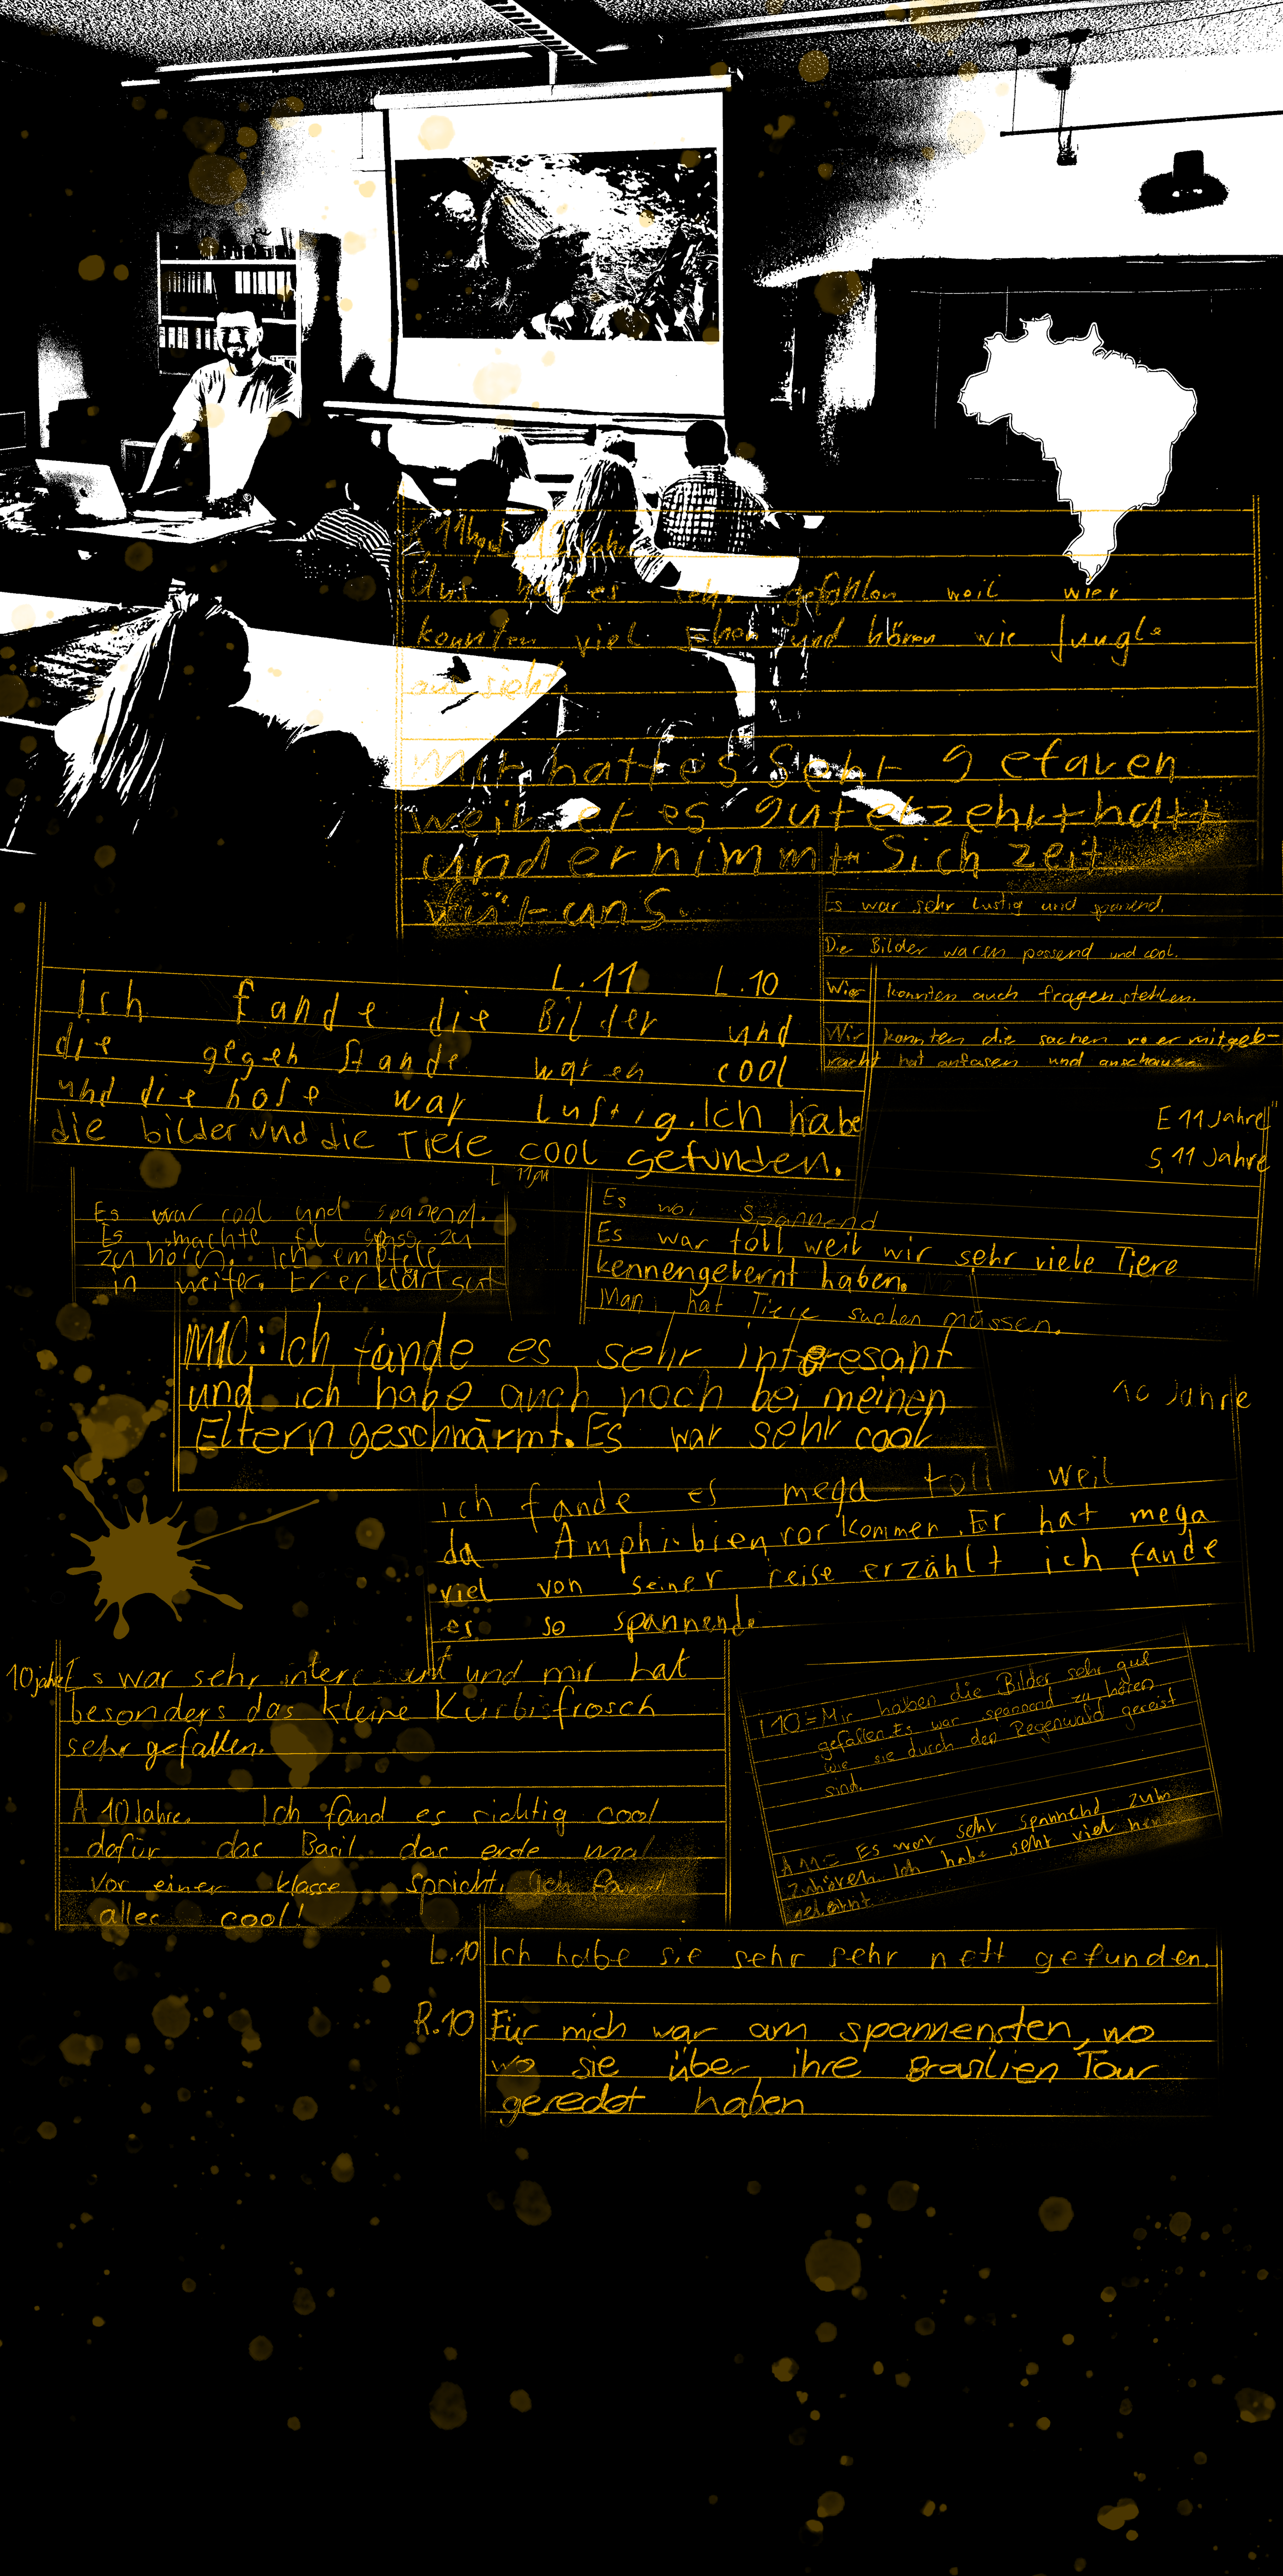 12 Jahre
Uns hat es sehr gefahlen weil wier
konnten viel sehen und hören wie Jungle
aus sieht.
Mir hat es sehr gefaren
weil er es gut erzehlt hatt
und er nimmt sich zeit
für uns.
Es war sehr lustig und spanend.
Die Bilder waren passend und cool.
Wir konnten auch fragen stehlen.
Wir konnten die sachen wo er mitgeb-
racht hat anfasen und anschauen
E 11 Jahre
S, 11 Jahre
L.11 L.10
Ich fande die Bilder und
die gegen stande waren cool
und die hose war lustig. Ich habe
die bilder und die Tiere cool gefunden.
L 11
Es war cool und spanend.
Es machte fil spass zu
zu hören. Ich empfele
in weiter. Er erklärt gut
Es war spannend
Es war toll weil wir sehr viele Tiere
kennengelernt haben.
Man hat Tiere suchen müssen.
M10: Ich fände es sehr interesant
und ich habe auch noch bei meinen
Eltern geschwärmt. Es war sehr cool
10 Jahre
ich fande es mega toll weil
da Amphibien vorkommen. Er hat mega
viel von seiner reise erzählt ich fande
es so spannende
10 jahre Es war sehr und mir hat
besonders das kleine Kürbisfrosch
sehr gefallen.
A 10 Jahre. Ich fand es richtig cool
dafür das Basil das erde mal
vor einer klasse spricht. Ich fand
alles cool!
I 10 = Mir haben die Bilder sehr gut
gefallen. Es war spannend zu hören
wie sie durch den Regenwald gereist
sind.
A 11 = Es war sehr spannend zum
zuhören. Ich habe sehr viel
gelernt.
L.10 Ich habe sie sehr sehr nett gefunden.
R.10 Für mich war am spannensten, wo
wo sie über ihre Brasilien Tour
geredet haben